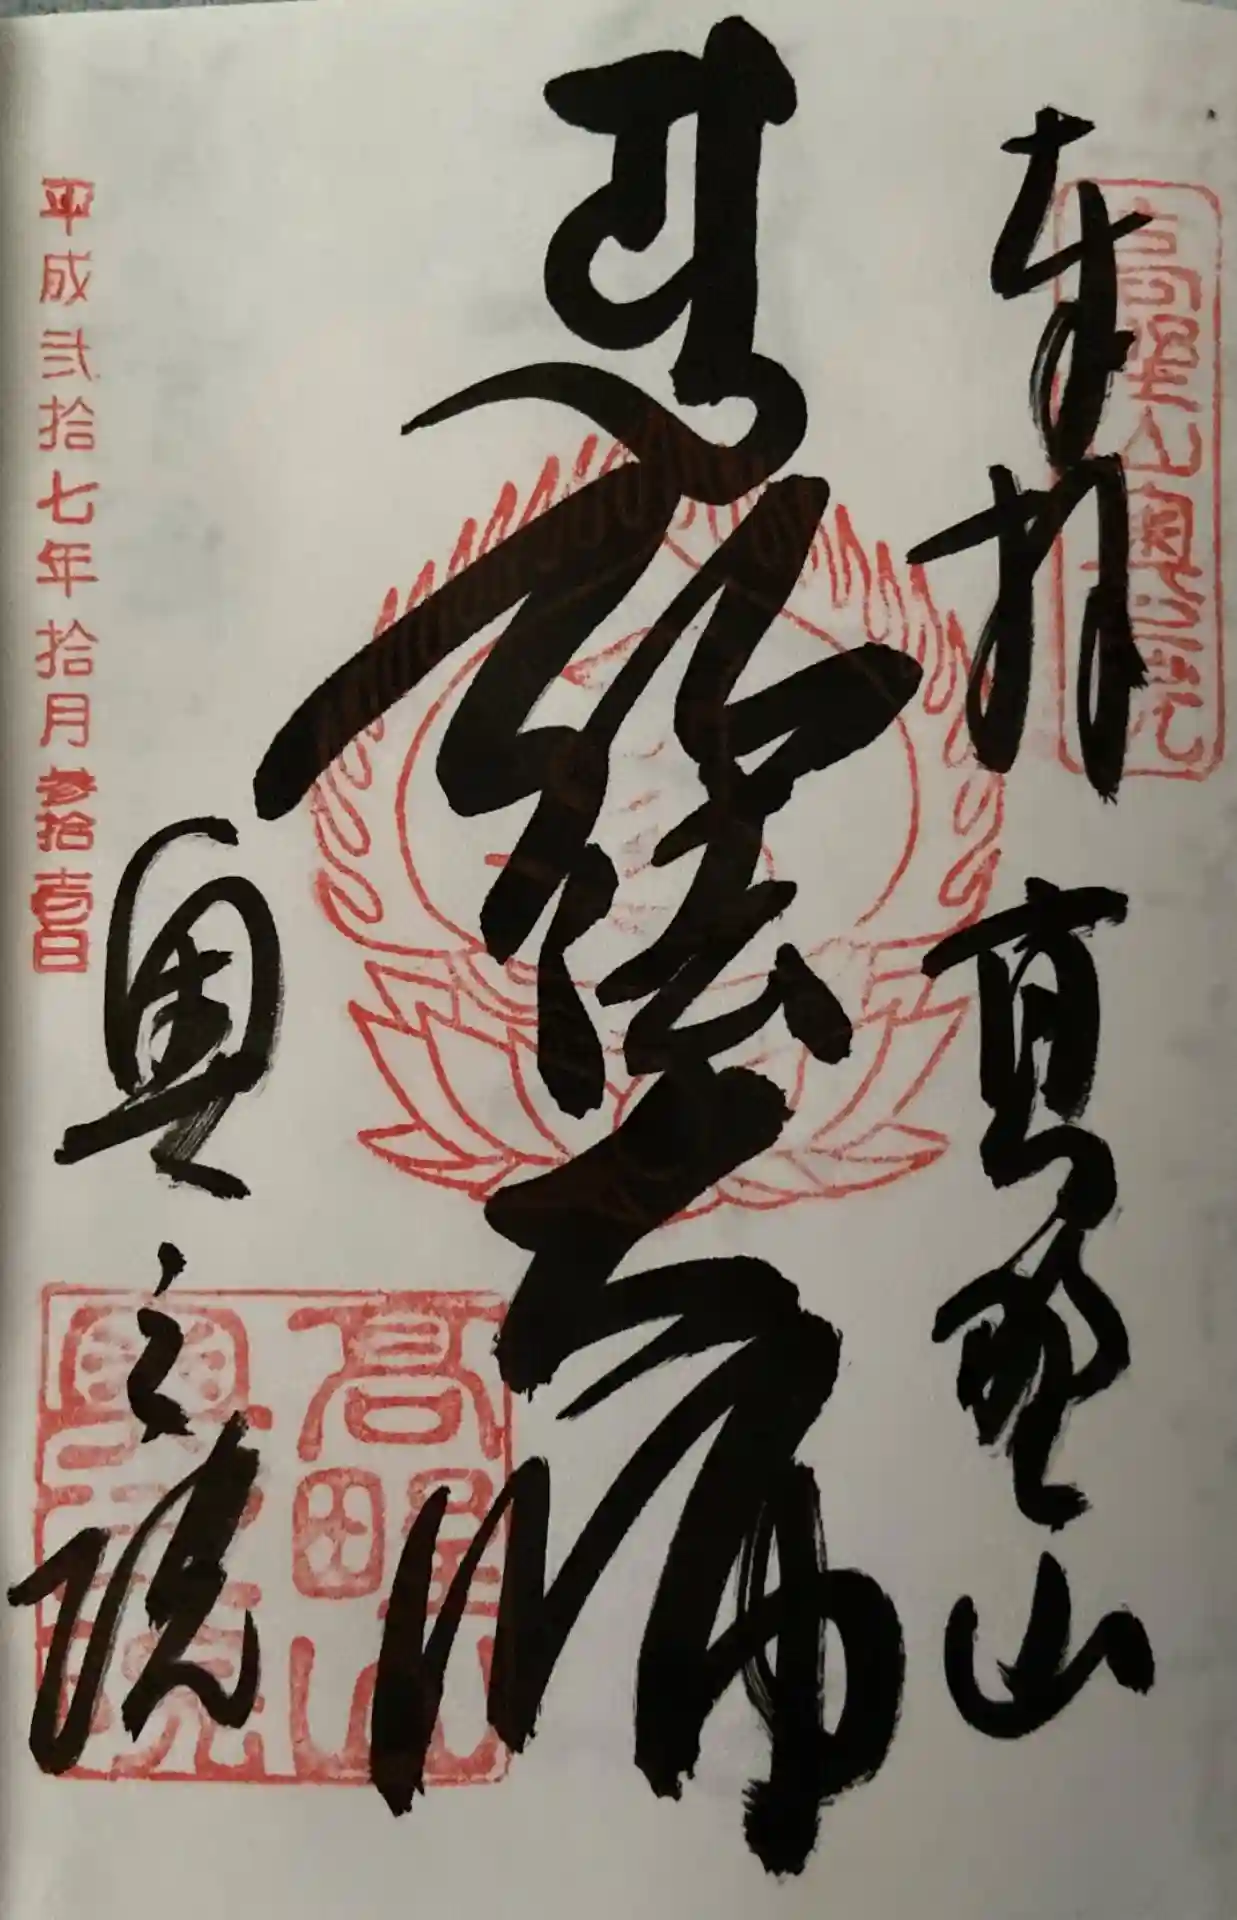 奉拝 高野山
高野山奥之院
弘法大師
奥之院
高野山奥之院
平成弐拾七年拾月参拾壱日